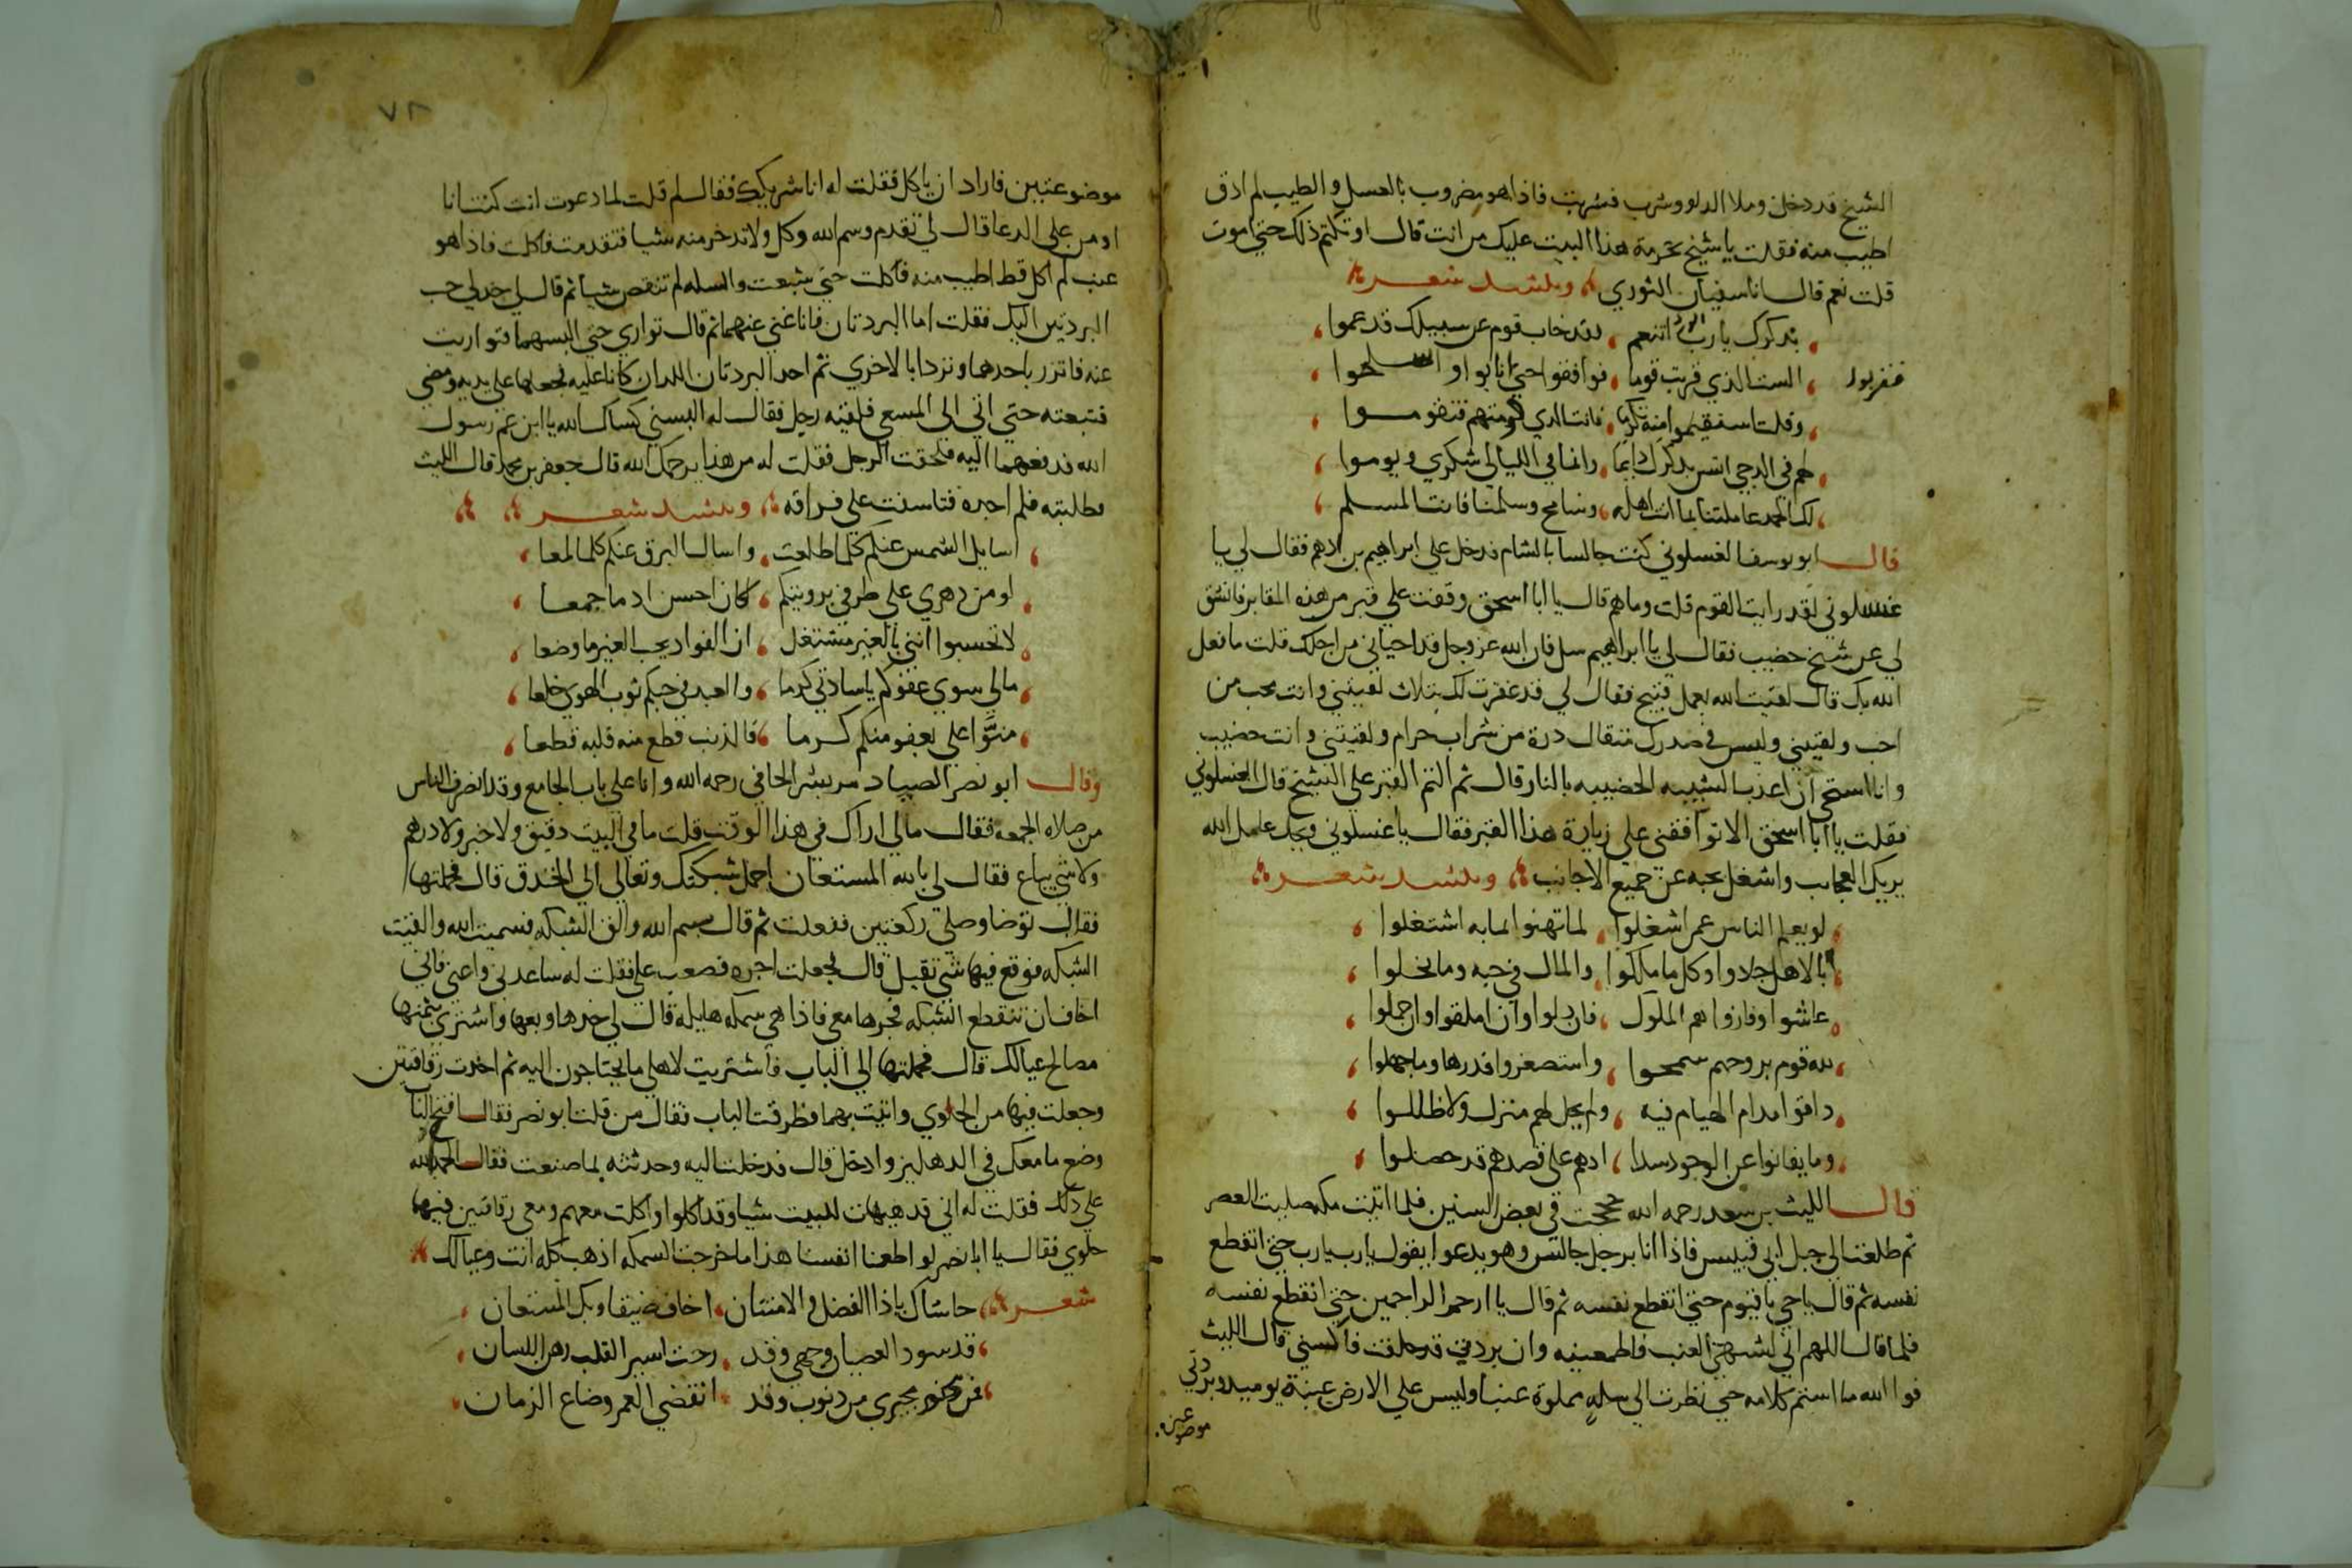 الشيخ قد دخل وملا الدلو وشرب فشربت فاذا هو مضروب بالعسل والطيب لم اذق
اطيب منه فقلت يا شيخ بحرمة هذا البيت عليك من انت قال او تكتم ذلك حتي اموت
قلت نعم قال انا سفيان الثوري وينشد شعر
بذكرك يا رب اتنعم لقد خاب قوم عن سبيلك قد عموا
الست الذي قربت قوما فوافقوا حتي انابوا و
فقربوا
وقلت استقيموا منة تكرما فانت الذي قومتهم فتقوموا
لهم في الدجي انس بذكرك دايما وانما في الليالي شكري ويوموا
لك الحمد عاملتنا بما انت اهله وسامح وسلمنا فانت المسلم
قال ابو يوسف الغسلوني كنت جالسا بالشام فدخل علي ابراهيم بن ادهم فقال لي يا
غسلوني لقد رايت القوم قلت وما هم قال يا ابا اسحق وقفت علي قبر من هذه المقابر فانشق
لي عن شيخ خضيب فقال لي يا ابراهيم سل فان الله عز وجل قد احياني من اجلك قلت ما فعل
الله بك قال لقيت الله بعمل قبيح فقال لي قد غفرت لك بثلاث لقيتني وانت تحب من
احب ولقيتني وليس في صدرك مثقال ذرة من شراب حرام ولقيتني وانت خضيب
وانا استحي ان اعذب الشيبه الخضيبه بالنار قال ثم التم القبر علي الشيخ قال الغسلوني
فقلت يا ابا اسحق الا توافقني علي زيارة هذا القبر فقال يا غسلوني ويحك عامل الله
يريك العجايب واشتغل بحبه عن جميع الاجانب وينشد شعر
لو يعلم الناس عمن اشغلوا لما تهنوا لما به اشتغلوا
بالاهل جادوا وكل ما ملكوا والمال في حبه وما بخلوا
عاشوا وفازوا هم الملوك فان ذلوا وان املقوا وان خملوا
لله قوم بروحهم سمحوا واستصغروا قدرها وما جهلوا
ذاقوا مدام الهيام فيه ولم يحل لهم منزل ولا ظللوا
وما يفانوا عن الوجود سدا اذ هم علي قصدهم قد حصلوا
قال الليث بن سعد رحمه الله حججت في بعض السنين فلما اتيت مكه صليت العصر
ثم طلعت الي جبل ابي قبيس فاذا انا برجل جالس وهو يدعوا يقول يا رب يا رب حتي انقطع
نفسه ثم قال يا حي يا قيوم حتي انقطع نفسه ثم قال يا ارحم الراحمين حتي انقطع نفسه
فلما قال اللهم اني اشتهي العنب فاطعمنيه وان بردتي قد خلقت فاكسني قال الليث
فوا الله ما استتم كلامه حتي نظرت الي سله مملوة عنبا وليس علي الارض عنبة يوميذ وبردتي
موضوعتين
٧٨
موضوعتين فاراد ان ياكل فقلت له انا شريكك فقال لم قلت لما دعوت انت كنت انا
اومن علي الدعا قال لي تقدم وسم الله وكل ولا تدخر منه شيا فتقدمت فاكلت فاذا هو
عنب لم اكل قط اطيب منه فاكلت حتي شبعت والسله لم تنقص شيا ثم قال لي خذ لي حب
البردتين اليك فقلت اما البردتان فانا غني عنهما ثم قال تواري حتي البسهما فتواريت
عنه فاتزر باحدهما وتردا بالاخري ثم اخذ البردتان اللذان كانا عليه فجعلهما علي يديه ومضي
فتبعته حتي اتي الي المسعي فلقيه رجل فقال له البسني كساك الله يا ابن عم رسول
الله فدفعهما اليه فلحقت الرجل فقلت له من هذا يرحمك الله قال جعفر بن محمد قال الليث
فطلبته فلم اجده فتاسفت علي فراقه وينشد شعر
اسايل الشمس عنكم كلما طلعت واسال البرق عنكم كلما لمعا
لو من دهري علي طرفي برويتكم لكان احسن اذ ما جمعا
لا تحسبوا انني بالغير مشتغل ان الفواد بحب الغير ما وضعا
مالي سوي عفوكم يا سادتي كرما والعبد في حبكم ثوب الهوي خلعا
منوا علي بعفو منكم كرما فالذنب قطع منه قلبه قطعا
وقال ابو نصر الصياد مر بشر الحافي رحمه الله وانا علي باب الجامع وقد انصرف الناس
من صلاه الجمعه فقال مالي اراك في هذا الوقت قلت ما في البيت دقيق ولا خبز ولا درهم
ولا شي يباع فقال لي بالله المستعان احمل شبكتك وتعالي الي الخندق قال فحملتها
فقال توضا وصلي ركعتين ففعلت ثم قال بسم الله والق الشبكه فسميت الله والقيت
الشبكه فوقع فيها شي ثقيل قال فجعلت اجره فصعب علي فقلت له ساعدني واعني فاني
اخاف ان تنقطع الشبكه فجرها معي فاذا هي سمكه هايله قال لي خذها وبعها واشتري بثمنها
مصالح عيالك قال فحملتها الي الباب فاشتريت لاهلي ما يحتاجون اليه ثم اخذت رقاقتين
وجعلت فيها من الحلوي واتيت بهما فطرقت الباب فقال من قلت ابو نصر فقال افتح الباب
وضع ما معك في الدهليز وادخل قال فدخلت اليه وحدثته بما صنعت فقال الحمد لله
علي ذلك فقلت له اني قد هيات للبيت شيا وقد اكلوا واكلت معهم ومعي رقاقتين فيها
حلوي فقال يا ابا نصر لو اطعنا انفسنا هذا ما خرجت السمكه اذهب كله انت وعيالك
شعر حاشاك يا ذا الفضل والامتنان اخاف ضيقا وبك المستعان
قد سود العصيان وجهي وقد رحت اسير القلب رهن اللسان
فمن مجيري من ذنوب وقد انقضي العمر وضاع الزمان